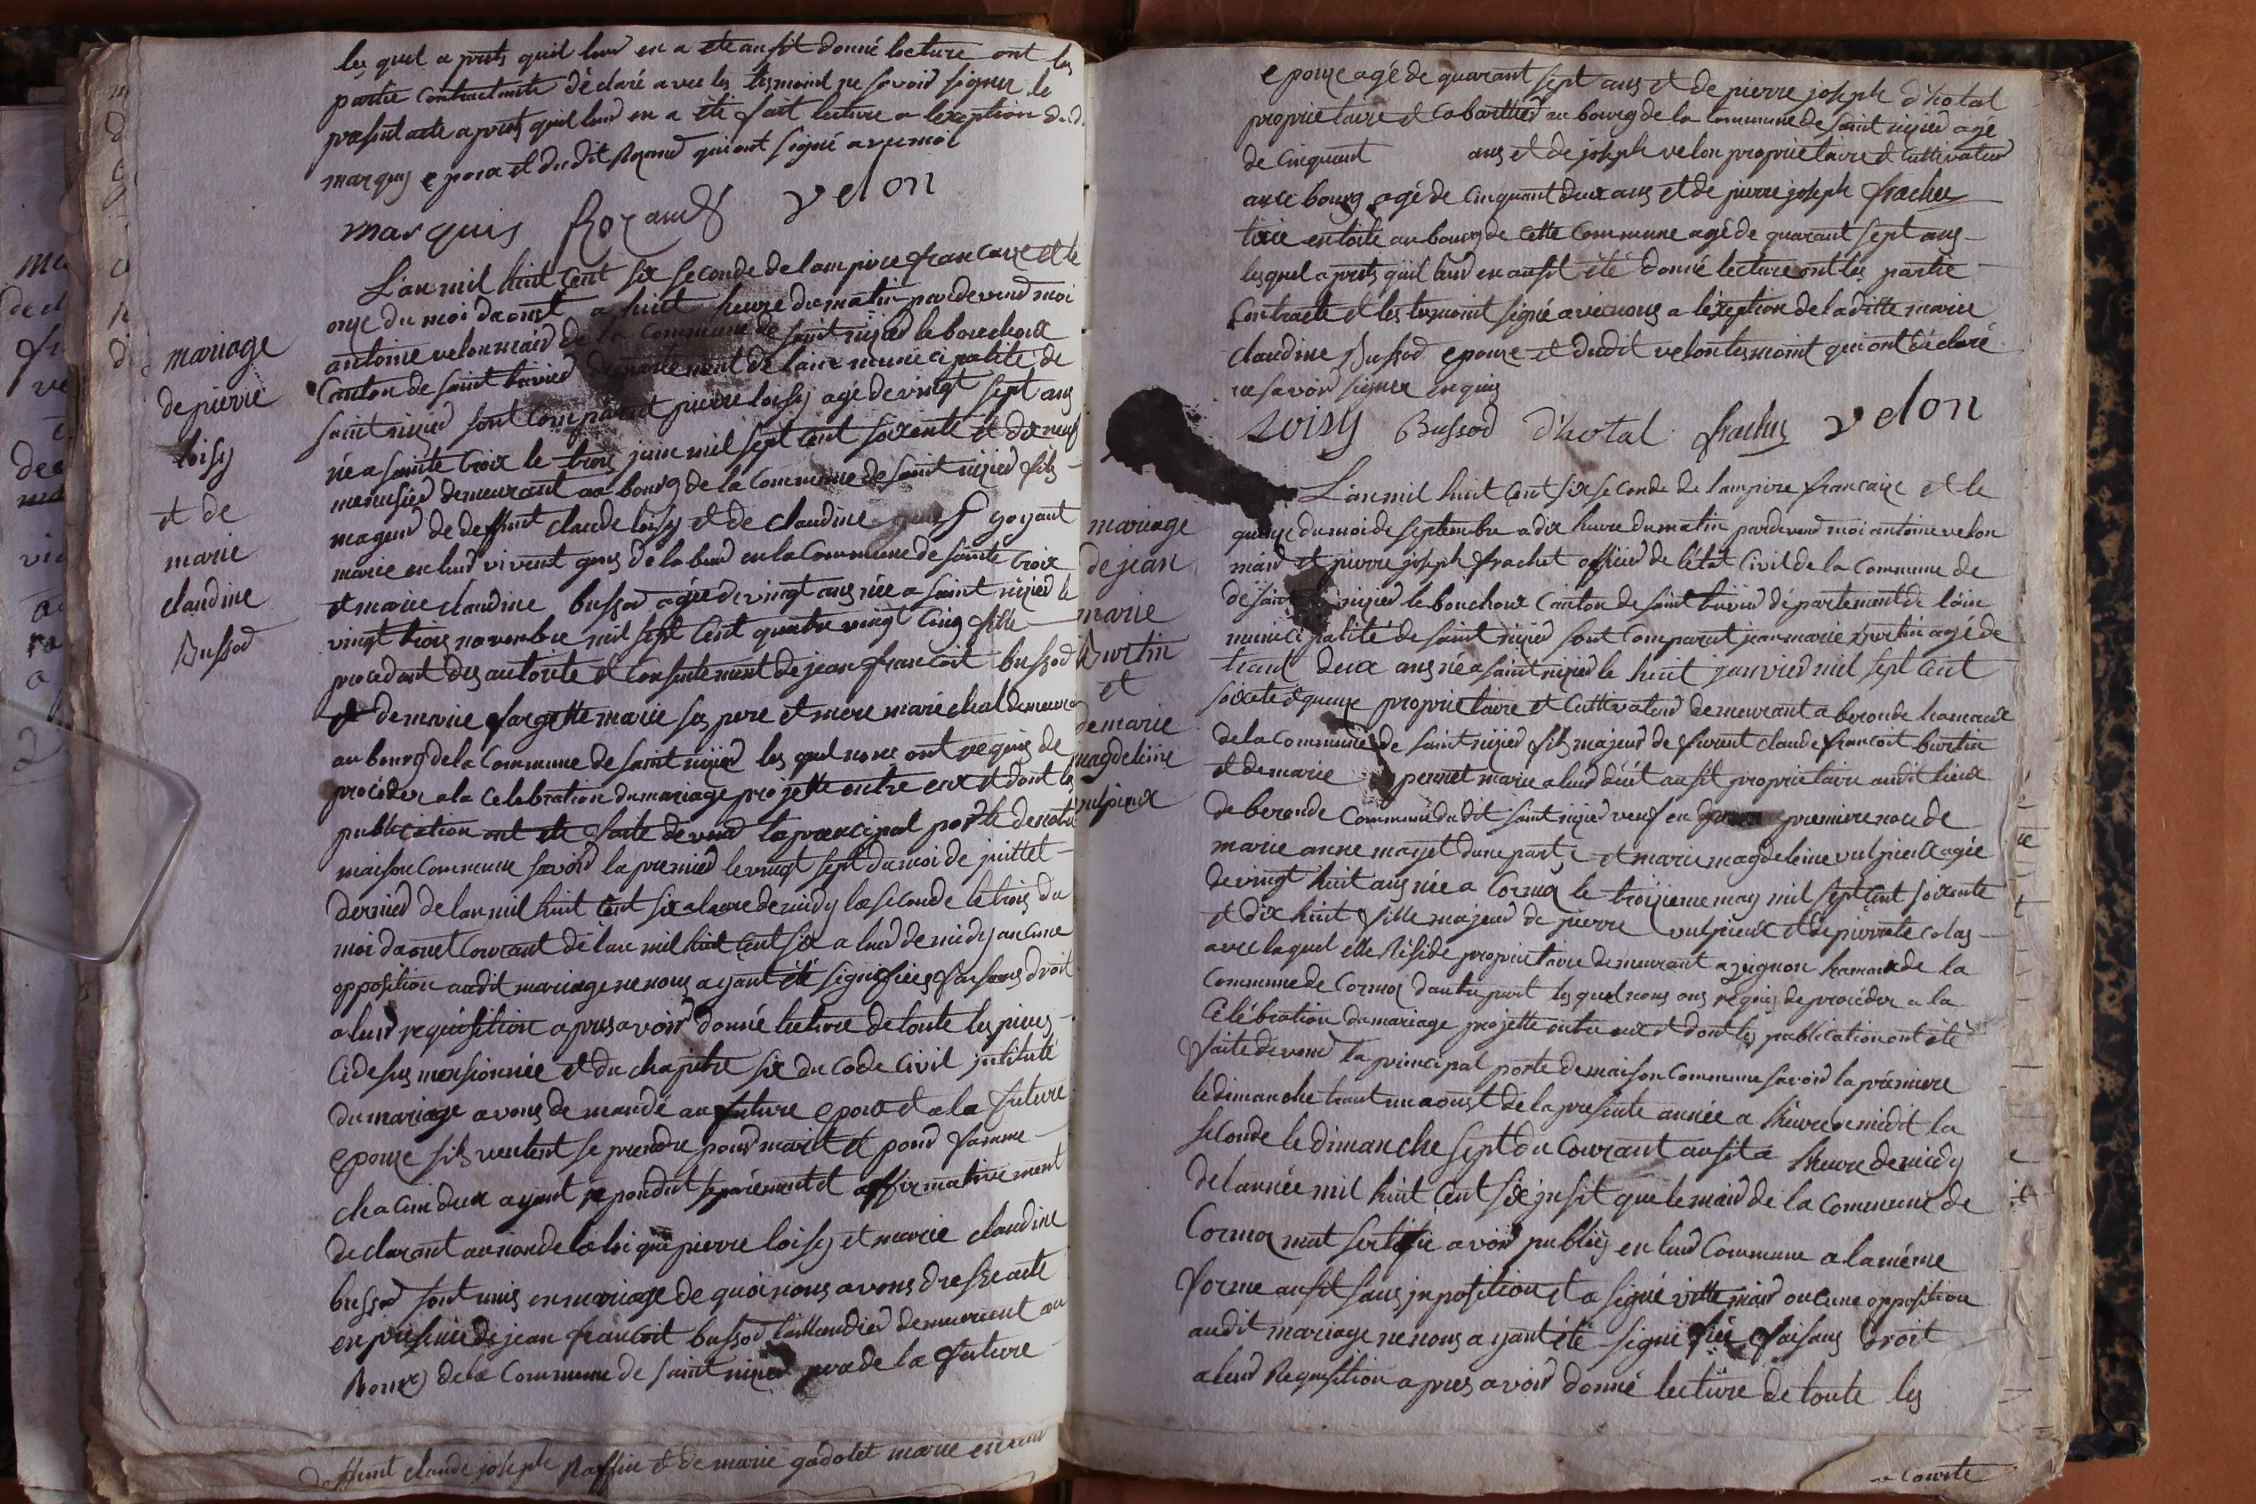 les quel a prets quil leur en a ete ausit donné lecture ont les
partie contractante déclaré avec les tesmoint ne savoir signer le
present acte a prets quil leur en a ete fait lecture a lexeption du d
marquis epoux et du dit Royand qui ont signé avec moi
marquis Royand velon
mariage
de pierre
loisy
et de
marie
claudine
Bussod
L'an mil huit cent six seconde de lampire francaise et le
onze du moi daoust a huit heure du matin pardevend moi
antoine velon maire de la commune de saint nizier le bouchoux
canton de saint trivier departement de lain municipalité de
saint nizier sont comparut pierre loisy agé de vingt sept ans
née a sainte Croix le trois juin mil sept cent soixente et dix neuf
menusier demeurant au bourg de la commune de saint nizier fils
mageur de deffunt claude loisy et de claudine goyant
marie en leur vivent gens de labeur en la Commune de sainte Croix
et marie claudine bussod agée de vingt ans née a saint nizier le
vingt trois novembre mil sept cent quatre vingt cinq fille
procedant des autorite et consentement de jean francoit bussod
et de marie fargette marie ses pere et mere maréchal demeurant
au bourg de la Commune de saint nizier les quel nous ont requis de
procéder a la celebration du mariage projette entre eux et dont les
publication ont ete faite devend la principal porte de notre
maison commune savoir la premier le vingt sept du moi de juittet
dernier de lan mil huit cent six a leure de midy la seconde le trois du
moi daoust courant de lan mil huit cent six a leur de midy aucune
opposition audit mariage ne nous ayant été signifiée faisans droit
a leur requisition apres avoir donné lecture de toute les pieces
ci desus mensionnée et du chapitre six du code civil jntitulé
du mariage avons demandé au future epoux et a la future
epouze sils veulent se prendre pour marit et pour famme
chacun deux ayant repondut separément et affirmativement
declarant au nom de la loi que pierre loisy et marie claudine
bussod sont unis en mariage de quoi nous avons dressé acte
en présence de jean francoit bussod taillandier demeurent au
Bourg de la Commune de saint nizier pere de la future
deffunt claude joseph Raffin et de marie gadolet marie en leur
epouze agé de quarant sept ans et de pierre joseph d'hotal
proprietaire et cabarttier au bourg de la commune de saint nizier agé
de cinquant ans et de joseph velon proprietaire et cultivateur
au ce bourg agé de cinquant deux ans et de pierre joseph frachet
tixie en toile au bourg de cette commune agé de quarant sept ans
lesquel a prets quil leur en ausit été donné lecture ont les partie
Contracte et les tesmoint signé avec nous a lexeption de la ditte marie
claudine Bussod epouze et dudit velon tesmoint qui ont déclaré
ne savoir signer enquis
Loisy Bussod d'hotal frachet velon
mariage
de jean
marie
Burtin
et
de marie
magdeleine
vulpieux
L'an mil huit cent six seconde de lampire francaize et le
quinze du moi de septembre a dix heure du matin pardevend moi antoine velon
maire et pierre joseph frachet officier de l'état civil de la commune de
de saint nizier le bouchoux canton de saint trivier département de l'ain
municipalité de saint nizier sont comparut jean marie burtin agé de
trant deux ans né a saint nizier le huit janvier mil sept cent
soixente et quinze proprietaire et cultivateur demeurant a beronde hamaux
de la commune de saint nizier fils majeur de furent claude francoit burtin
et de marie perret marie a leur décét ausit proprietaire audit lieux
de beronde commune du dit saint nizier veuf en premiere noce de
marie anne mayet dune part et marie magdeleine vulpieux agée
de vingt huit ans née a Cormoz le troizieme may mil sept cent soixente
et dix huit fille majeur de pierre vulpieux et de pierrette colas
avec laquel elle Réside proprietaire demeurant a gignon hamaux de la
commune de Cormoz dautre part les quel nous ons requis de procéder a la
Célébration du mariage projette entre eux et dont les publication ont été
faite devend la principal porte de maison commune savoir la premiere
le dimanche trant un aoust de la presente année a l'heure de midit la
seconde le dimanche sept du courant ausit a lheure de midy
de lannée mil huit cent six jnsit que le maire de la commune de
Cormoz mat sertifié avoir publiés en leur Commune a la même
forme ausit sans jnposition et a signé vitte maire aucune opposition
audit mariage ne nous ayant été signifiée faisans droit
a leur Requisition apres avoir donné lecture de toute les